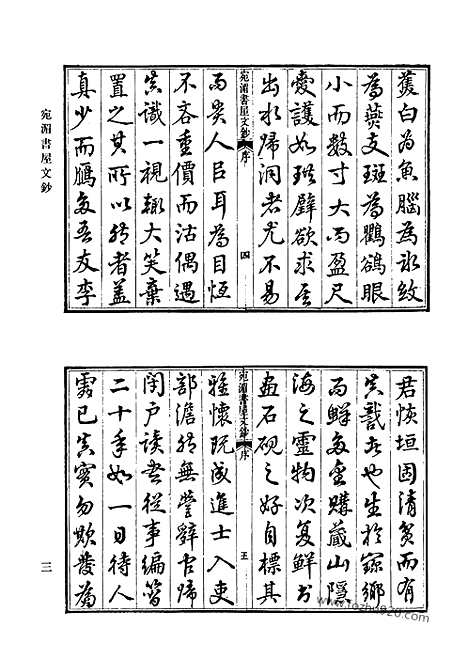 蕉白为魚腦為冰紋
為燕支斑為鸜鵒眼
小而數寸大而盈尺
愛護如珙璧欲求至
出水歸洞者尤不易
宛湄書屋文鈔 序 四
而貴人臣耳為目恆
不吝重價而沽偶遇
真識一視輒大笑棄
置之其所以然者蓋
真少而鴈多吾友李
君恢垣固清貧而有
真識者也生於窮鄉
而鮮多金購藏山隱
海之靈物次复鮮書
畫石硯之好自標其
宛湄書屋文鈔 序 五
雅懷既成進士入吏
部澹然無營辭官歸
閉户读書從事編簪
二十年如一日待人
露已真實勿欺發為
宛湄書屋文鈔
三
www.fozhu920.com